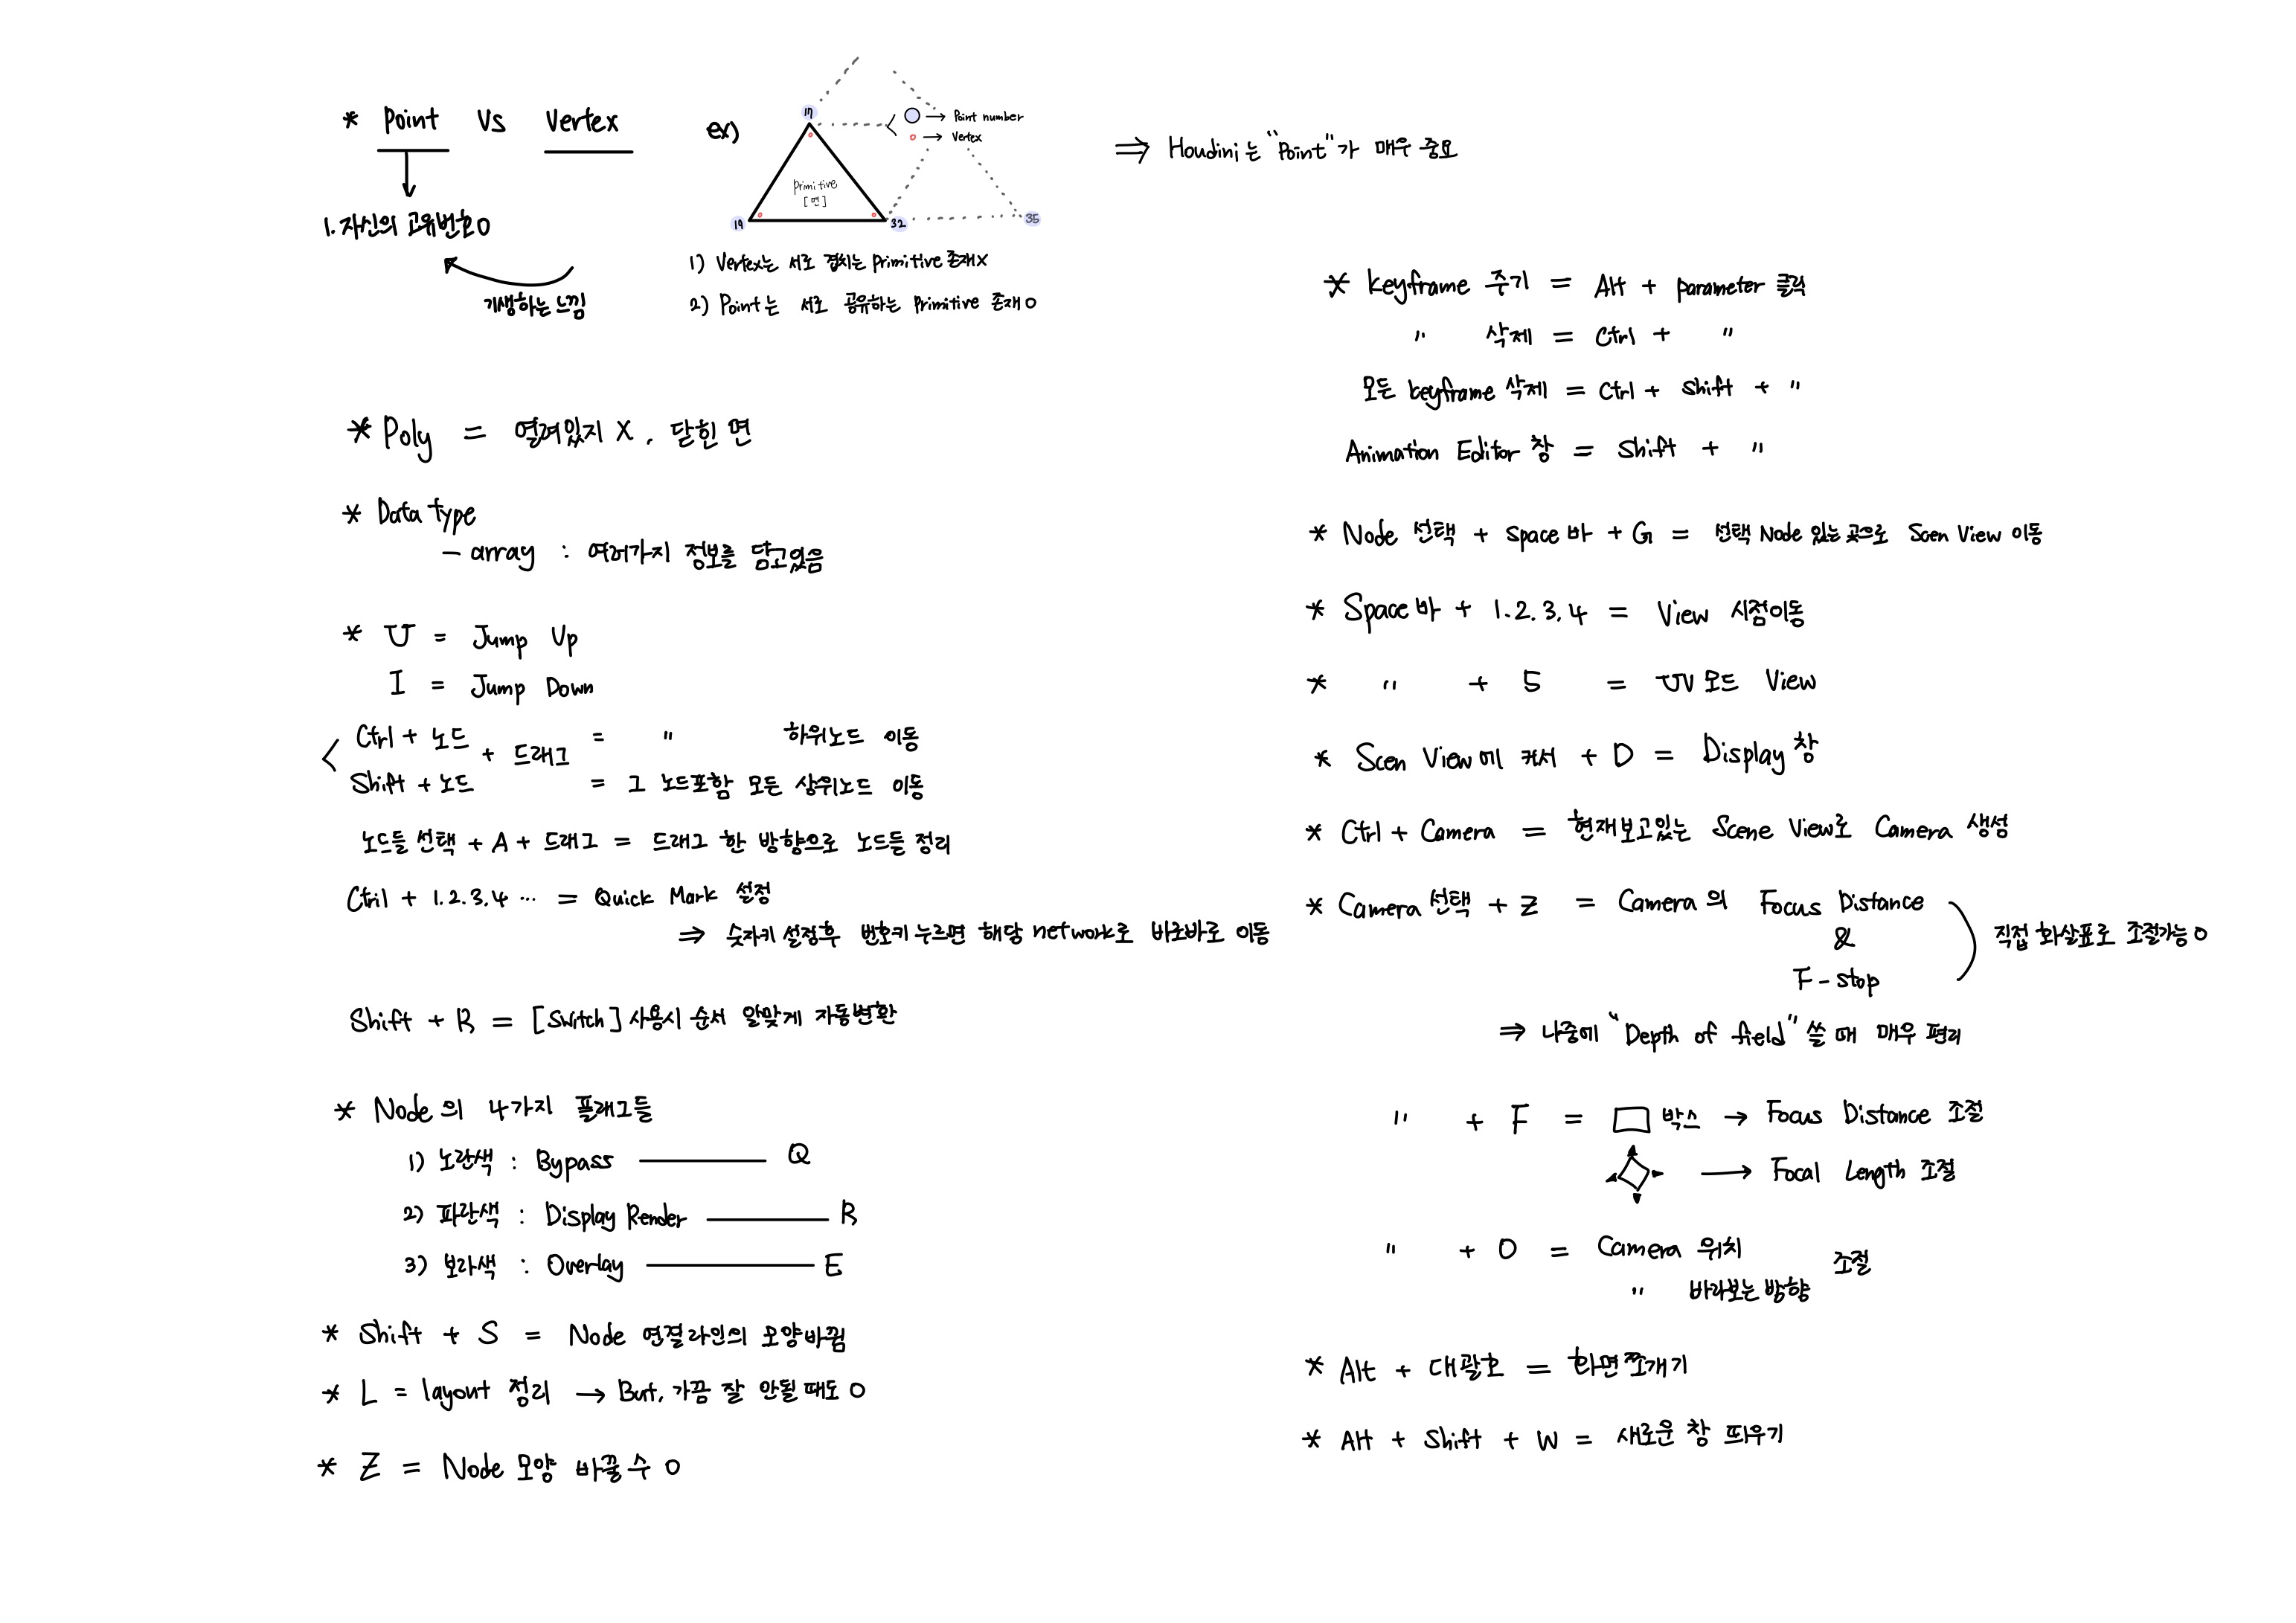 * Point vs Vertex
1. 자신의 고유번호 O
기생하는 느낌
ex)
17
19
32
35
Primitive
[면]
→ Point number
→ Vertex
1) Vertex는 서로 겹치는 primitive 존재 X
2) Point는 서로 공유하는 primitive 존재 O
⇒ Houdini는 "Point"가 매우 중요
* Poly = 열려있지 X, 닫힌 면
* Data type
- array : 여러가지 정보를 담고있음
* U = Jump Up
I = Jump Down
Ctrl + 노드 + 드래그 = " 하위노드 이동
Shift + 노드 = 그 노드포함 모든 상위노드 이동
노드들 선택 + A + 드래그 = 드래그 한 방향으로 노드들 정리
Ctrl + 1.2.3.4 ... = Quick Mark 설정
⇒ 숫자키 설정후 번호키 누르면 해당 network로 바로바로 이동
Shift + R = [Switch] 사용시 순서 알맞게 자동변환
* Node의 4가지 플래그들
1) 노란색 : Bypass — Q
2) 파란색 : Display Render — R
3) 보라색 : Overlay — E
* Shift + S = Node 연결라인의 모양바뀜
* L = layout 정리 → But, 가끔 잘 안될 때도 O
* Z = Node 모양 바꿀 수 O
* keyframe 주기 = Alt + parameter 클릭
" 삭제 = Ctrl + "
모든 keyframe 삭제 = Ctrl + shift + "
Animation Editor 창 = shift + "
* Node 선택 + space 바 + G = 선택 Node 있는 곳으로 Scen View 이동
* Space 바 + 1.2.3.4 = View 시점이동
* " + 5 = UV 모드 View
* Scen View에 커서 + D = Display 창
* Ctrl + Camera = 현재보고있는 Scene View로 Camera 생성
* Camera 선택 + Z = Camera의 Focus Distance
&
F-stop
직접 화살표로 조절가능 O
⇒ 나중에 "Depth of field" 쓸 때 매우 편리
" + F = 박스 → Focus Distance 조절
→ Focal Length 조절
" + D = Camera 위치
" 바라보는 방향
조절
* Alt + 대괄호 = 화면쪼개기
* Alt + Shift + W = 새로운 창 띄우기